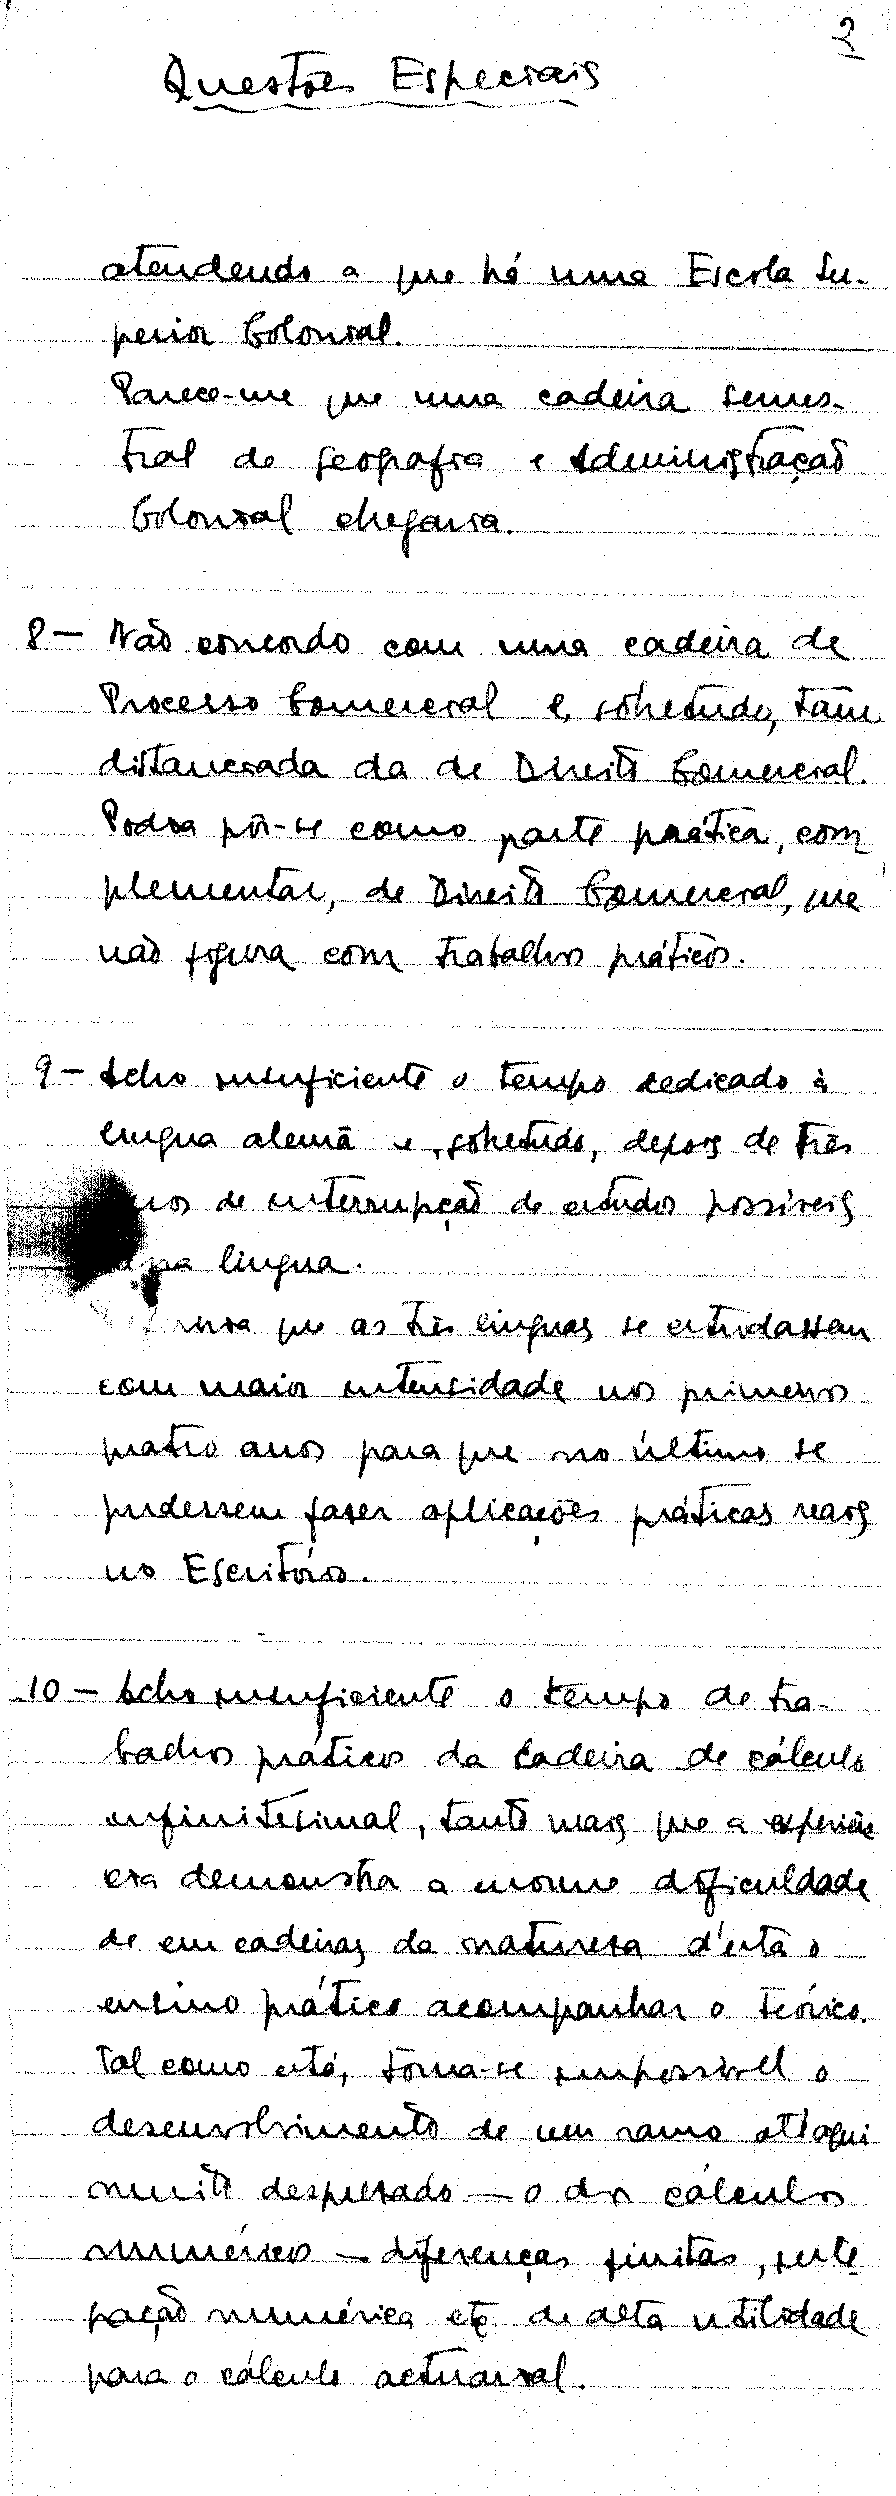 3
Questões Especiais
atendendo a que há uma Escola Su-
perior Colonial.
Parece-me que uma cadeira semes-
tral de Geografia e Administração
Colonial chegaria.
8- Não concordo com uma cadeira de
Processo Comercial e, sobretudo, tam
distanciada da de Direito Comercial.
Podia pôr-se como parte prática, com
plementar, de Direito Comercial, que
não figura com trabalhos práticos.
9- Acho insuficiente o tempo dedicado à
lingua alemã e, sobretudo, depois de três
de interrupção de estudos possíveis
lingua.
que as três linguas se estudassem
com maior intensidade nos primeiros
quatro anos para que no último se
pudessem fazer aplicações práticas reais
no Escritório.
10- Acho insuficiente o tempo de tra-
balhos práticos da Cadeira de cálculo
infinitesimal, tanto mais que a experiên
cia demonstra a enorme dificuldade
de em cadeiras da natureza d'esta o
ensino prático acompanhar o teórico.
Tal como está, torna-se impossível o
desenvolvimento de um ramo até aqui
muito desprezado — o dos cálculos
numéricos — diferenças finitas, inte
gração numérica etc de alta utilidade
para o cálculo actuarial.